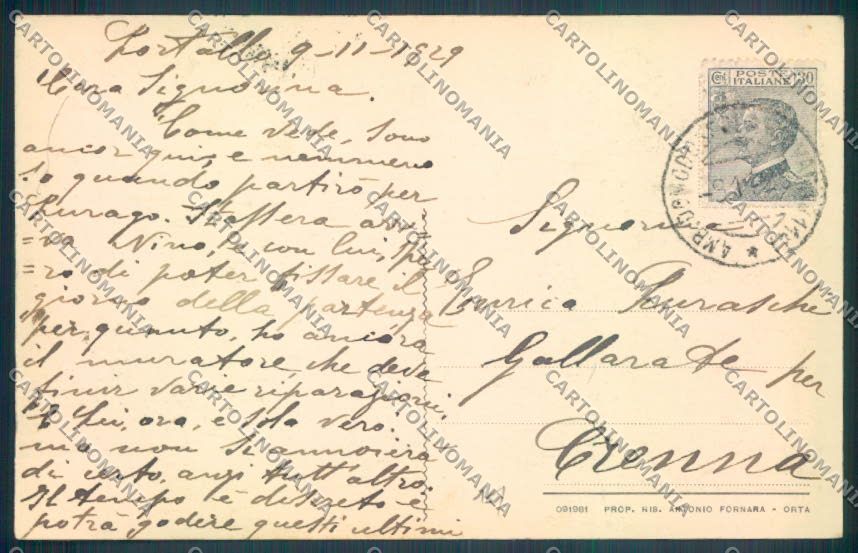 9-11-1929
Cara Signorina.
Come vede, sono
ancor qui, e nemmeno
so quando partirò per
Lurago. Stassera arri
=va Nino, e con lui, spe
=ro di poter fissare il
giorno della partenza
per quanto, ho ancora
il muratore che deve
finir varie riparazioni,
E Lei, ora, è sola vero
ma non si annoierà
di certo, anzi tutt'altro.
Il tempo è discreto e
potrà godere questi ultimi
POSTE
ITALIANE
Cent. 30
Signorina
Enrica Puraschi
Gallarate per
Crenna
091981 PROP. RIS. ANTONIO FORNARA - ORTA
CARTOLINOMANIA